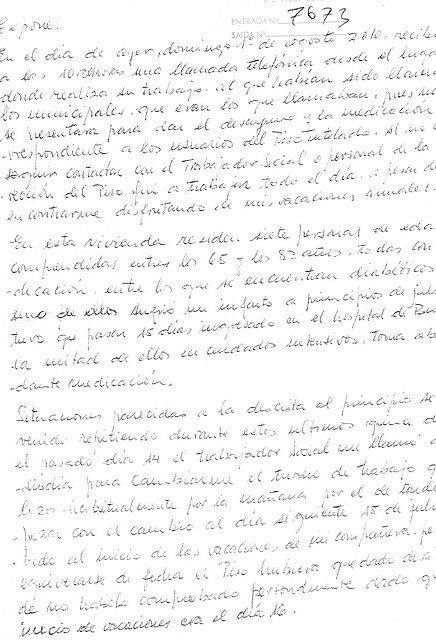 Expone:
ENTRADA Nº 7673
SALIDA Nº
En el día de ayer, domingo 1 de agosto 2010, recibí
a las 10 horas una llamada telefónica desde el lugar
donde realizo su trabajo, al que habían sido llama
los municipales, que eran los que llamaban, pues no
se presentara para dar el desayuno y la medicación
-rrespondiente a los usuarios del Piso Tutelado. Al no
seguir contactar con el Trabajador Social o personal de la
-rección del Piso fui a trabajar todo el día, a pesar de
encontrarme disfrutando de mis vacaciones anuales.
En esta vivienda residen siete personas de eda
comprendidas entre los 65 y los 83 años, todas con
-dicación, entre los que se encuentran diabéticos
uno de ellos sufrió un infarto a principios de jul
tuvo que pasar 15 días ingresado en el hospital de
la mitad de ellos en cuidados intensivos, toma ab
-dante medicación.
Situaciones parecidas a la descrita al principio se
venido repitiendo durante estos últimos
el pasado día 14 el trabajador Social me llamó a
-diodía para cambiarme el turno de trabajo q
lizo habitualmente por la mañana por el de tarde
-pezar con el cambio al día siguiente 15 de julio
-bido al inicio de las vacaciones de mi compañera, pe
equivocarse de fecha el Piso hubiera quedado
de no haberlo comprobado personalmente dado q
inicio de vacaciones era el día 16.